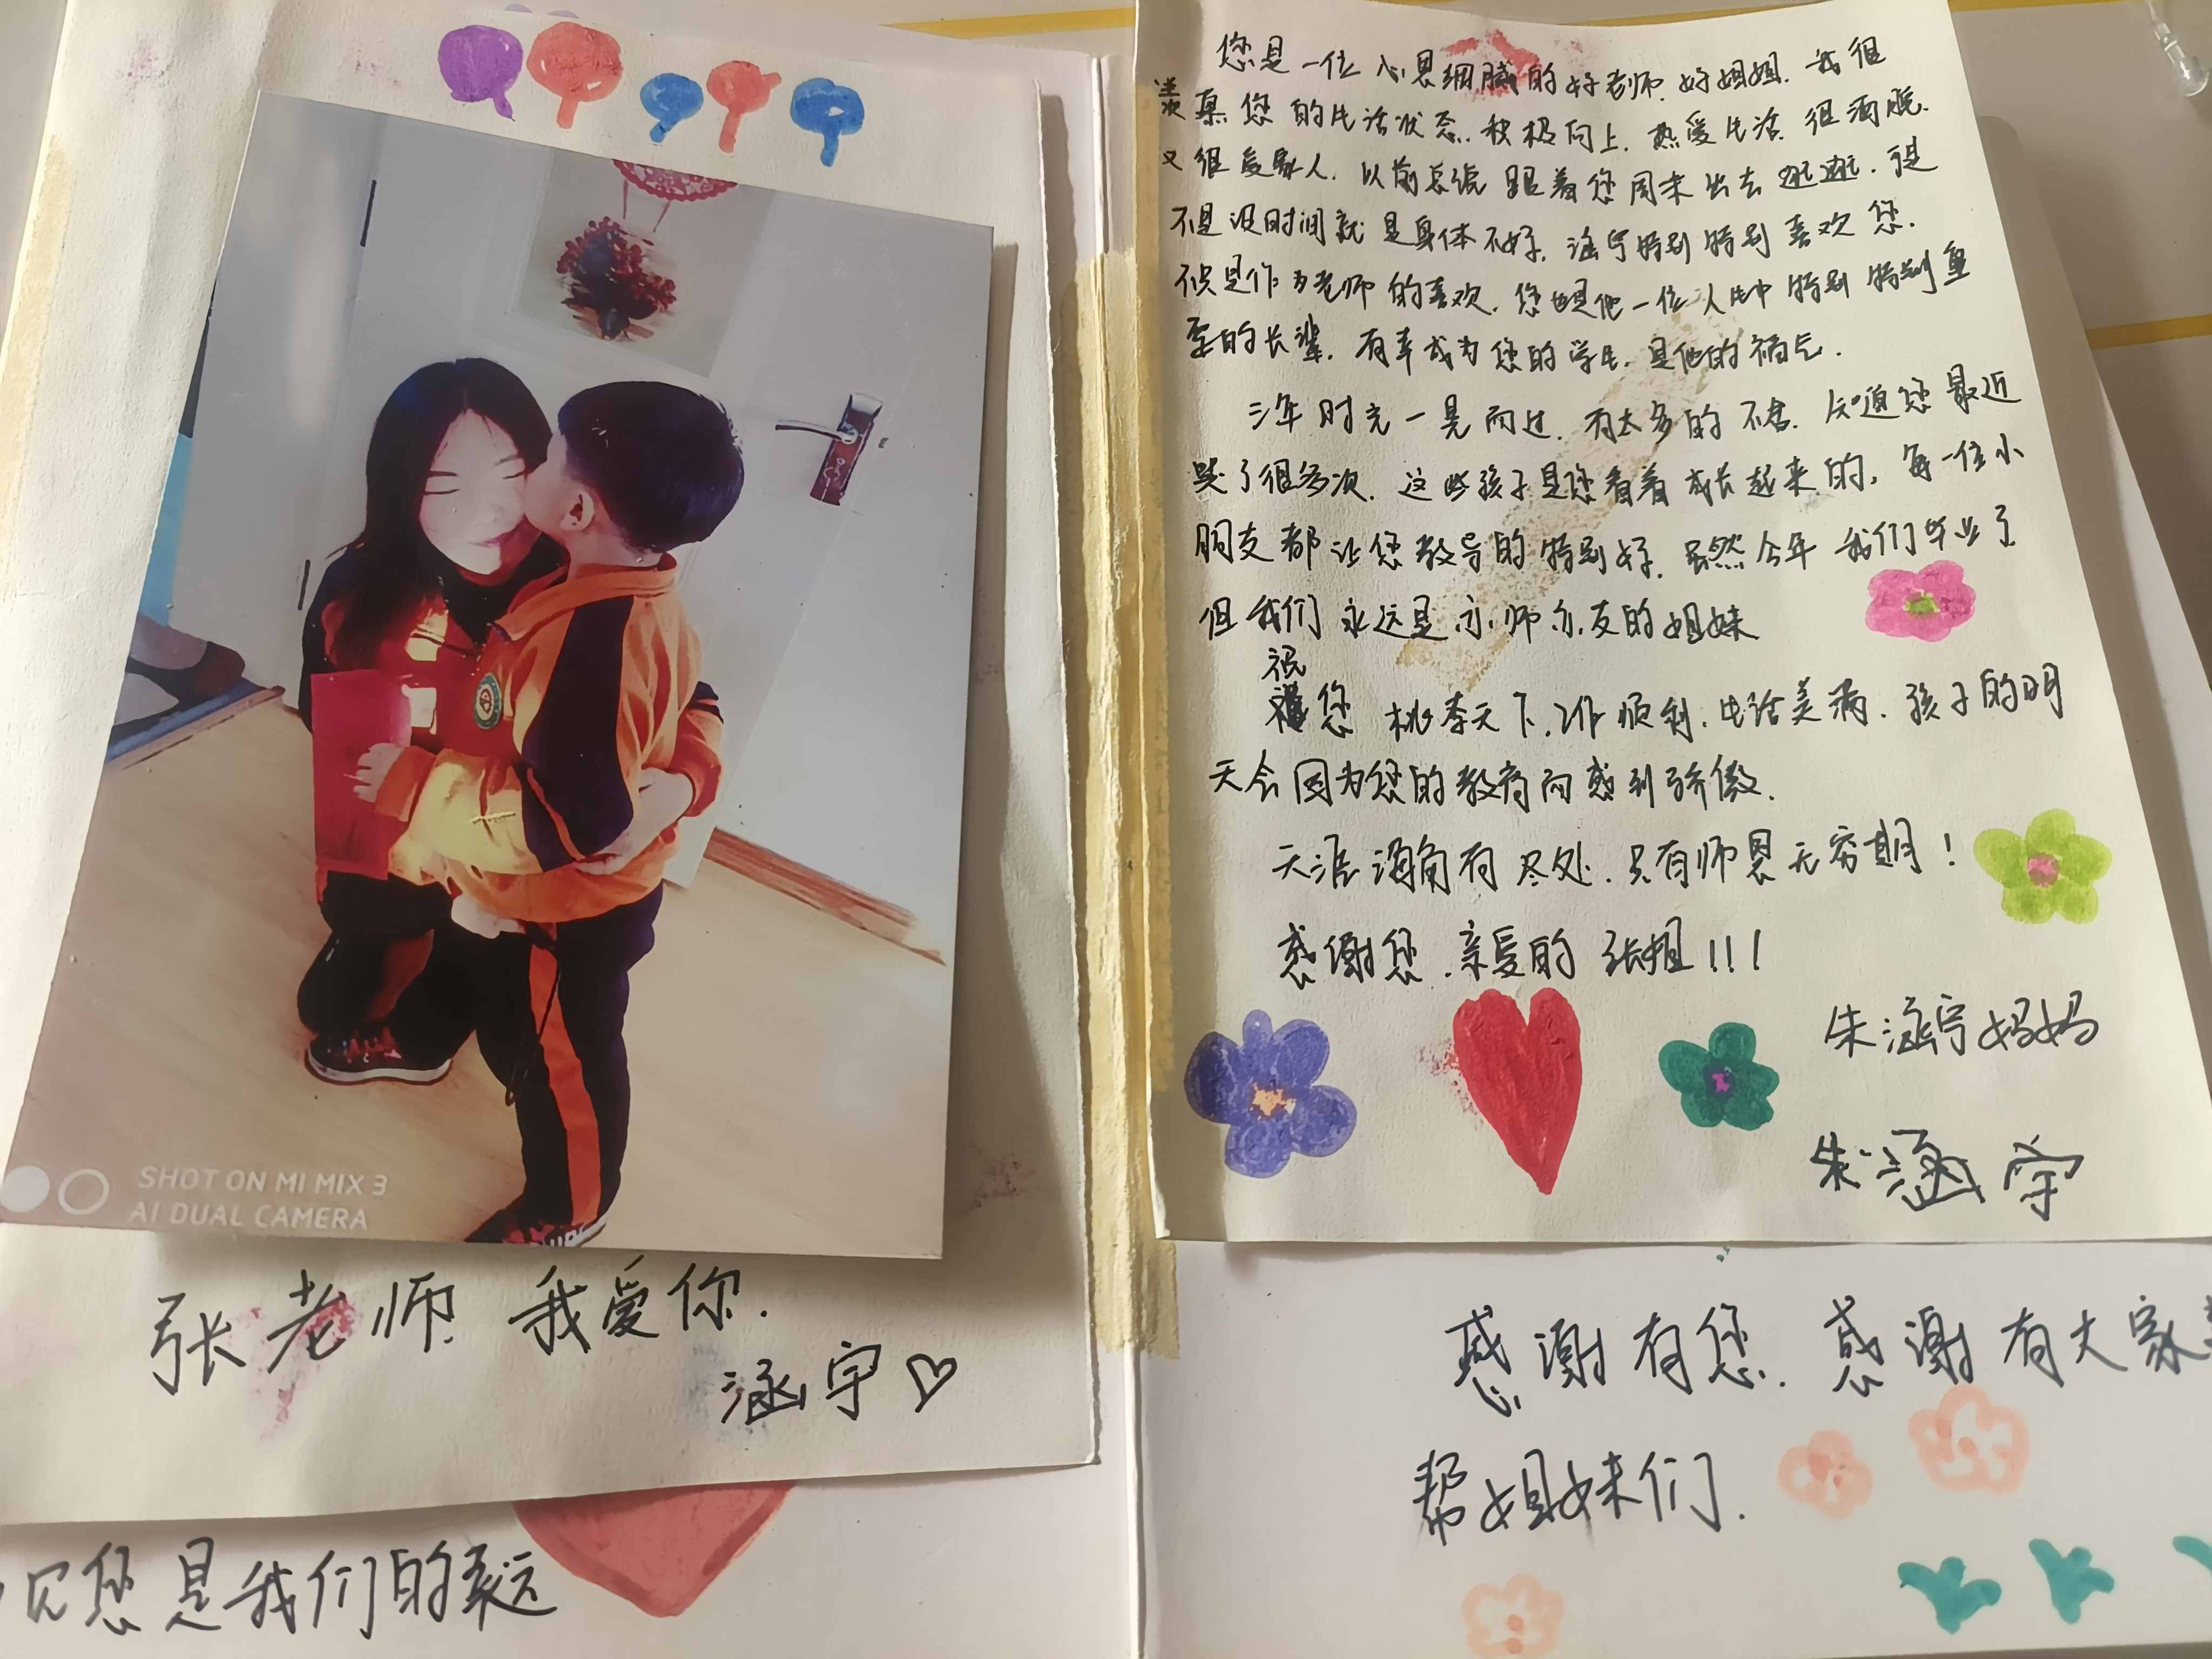 SHOT ON MI MIX 3
AI DUAL CAMERA
张老师 我爱你.
涵宇
您是我们的幸运
您是一位心思细腻的好老师. 好姐姐. 我很
羡慕您的生活状态. 积极向上. 热爱生活. 很洒脱.
又很爱家人. 以前总说跟着您周末出去逛逛. 可是
不是没时间就是身体不好. 涵宇特别特别喜欢您.
不只是作为老师的喜欢. 您也是他一位人生中特别特别重
要的长辈. 有幸成为您的学生. 是他的福气.
三年时光一晃而过. 有太多的不舍. 知道您最近
哭了很多次. 这些孩子是您看着成长起来的, 每一位小
朋友都让您教导的特别好. 虽然今年我们毕业了
但我们永远是亦师亦友的姐妹
祝
您 桃李天下, 工作顺利. 生活美满. 孩子的明
天会因为您的教育而感到骄傲.
天涯海角有尽处. 只有师恩无穷期!
感谢您. 亲爱的 张姐!!!
朱涵宇妈妈
朱涵宇
感谢有您. 感谢有大家
帮姐妹们.